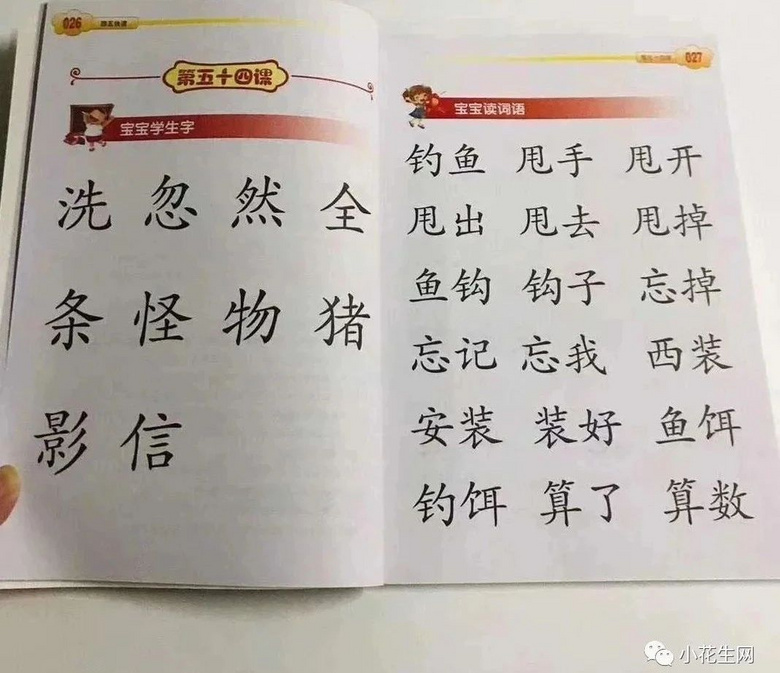 026 四五快读
第五十四课
宝宝学生字
洗 忽 然 全
条 怪 物 猪
影 信
027
宝宝读词语
钓鱼 甩手 甩开
甩出 甩去 甩掉
鱼钩 钩子 忘掉
忘记 忘我 西装
安装 装好 鱼饵
钓饵 算了 算数
小花生网